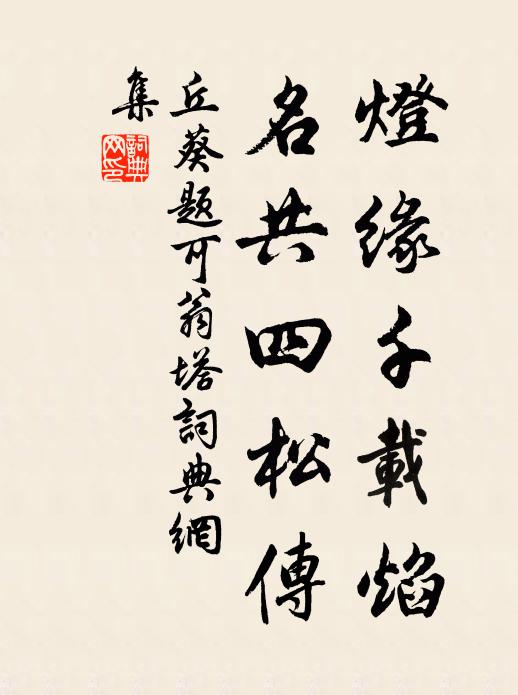 燈緣千載焰
名共四松傳
丘葵題可翁塔詞典網
集
詞典
网印